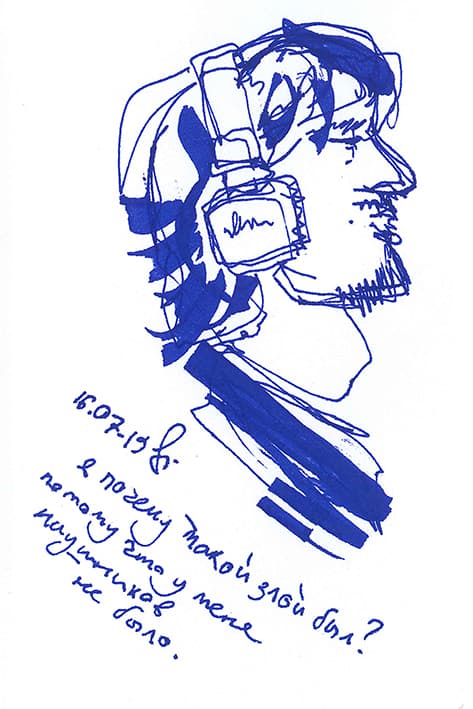 16.07.19
я почему такой злой был?
потому что у меня
наушников
не было.